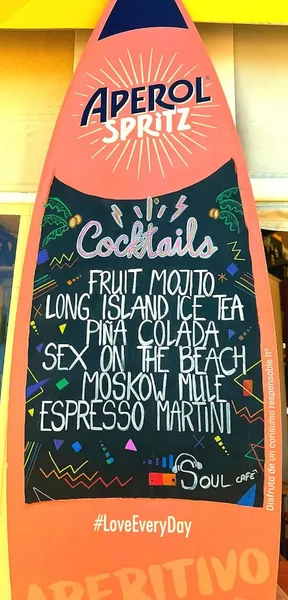 APEROL
SPRITZ
Cocktails
FRUIT MOJITO
LONG ISLAND ICE TEA
PIÑA COLADA
SEX ON THE BEACH
MOSKOW MULE
ESPRESSO MARTINI
SOUL CAFE
Disfruta de un consumo responsable 11°
#LoveEveryDay
APERITIVO